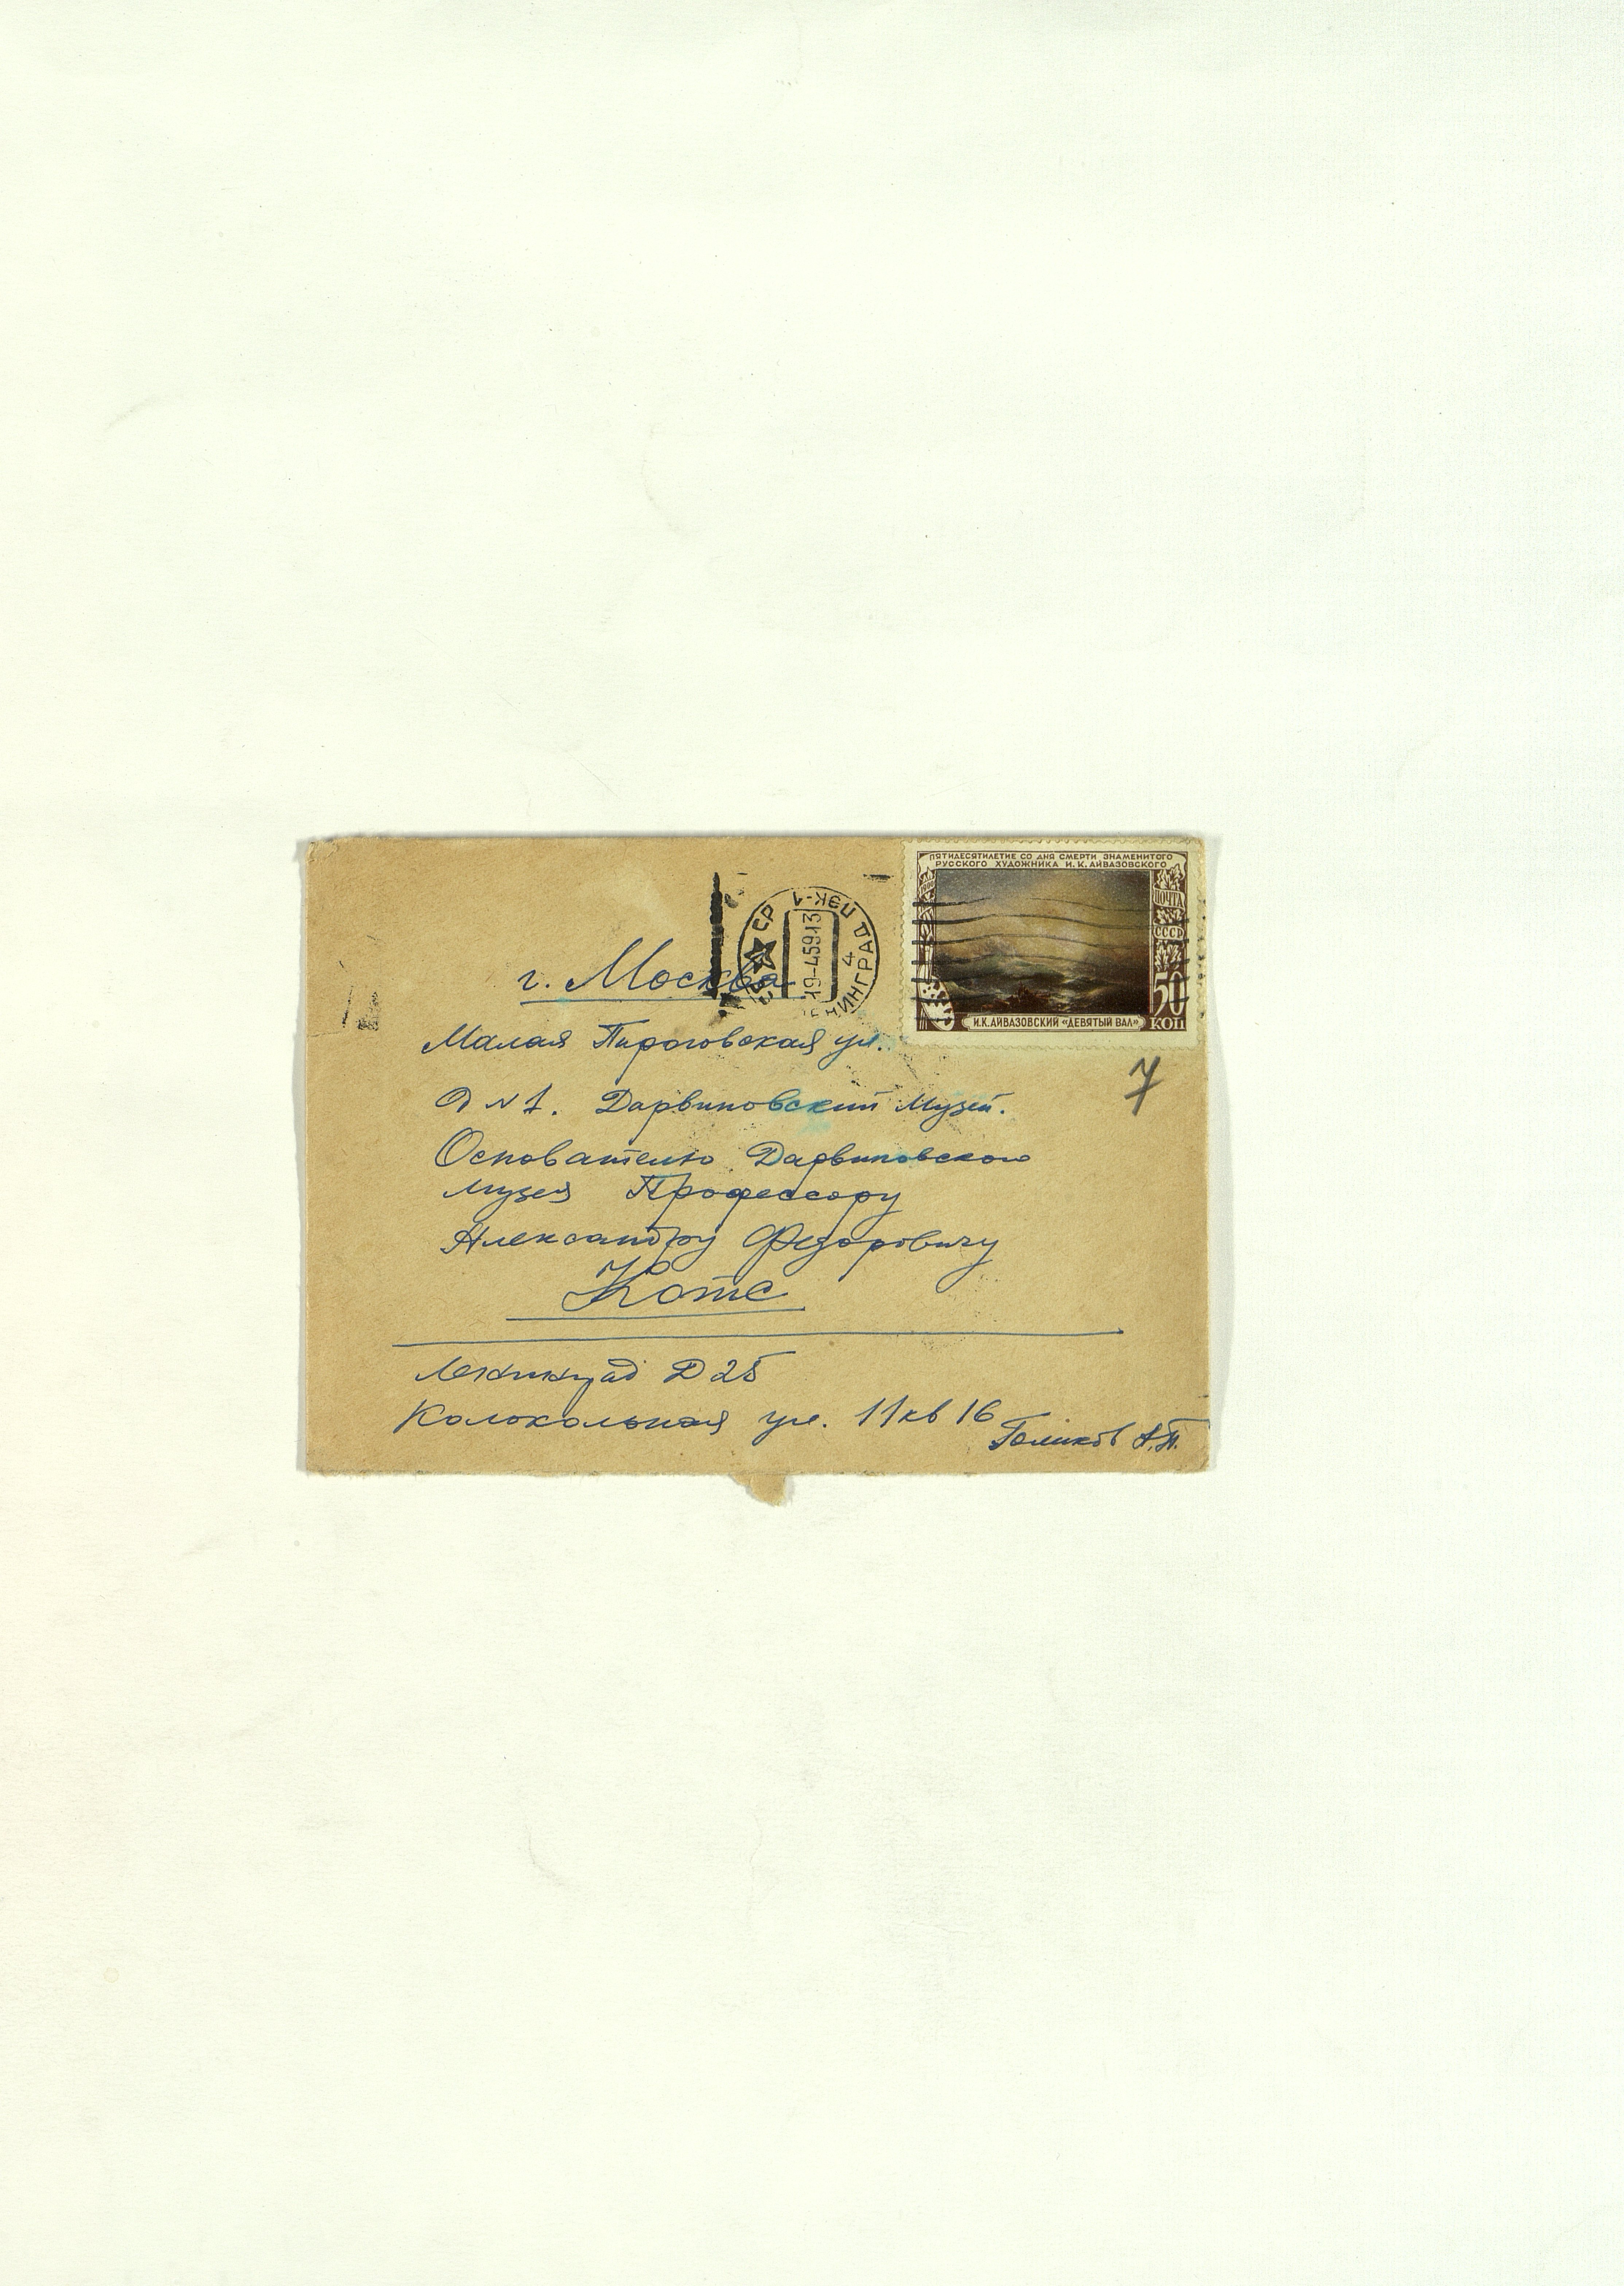 ПЯТИДЕСЯТИЛЕТИЕ СО ДНЯ СМЕРТИ ЗНАМЕНИТОГО
РУССКОГО ХУДОЖНИКА И.К.АЙВАЗОВСКОГО
ПОЧТА
СССР
50
КОП
И.К.АЙВАЗОВСКИЙ «ДЕВЯТЫЙ ВАЛ»
ЕНИНГРАД ПЭК-1
19-4.59.13
4
г. Москва
Малая Пироговская ул.
7
Д №1. Дарвиновский Музей.
Основателю Дарвиновского
Музея Профессору
Александру Федоровичу
Котс
Ленинград Д 25
Колокольная ул. 11 кв 16
Голиков А.П.